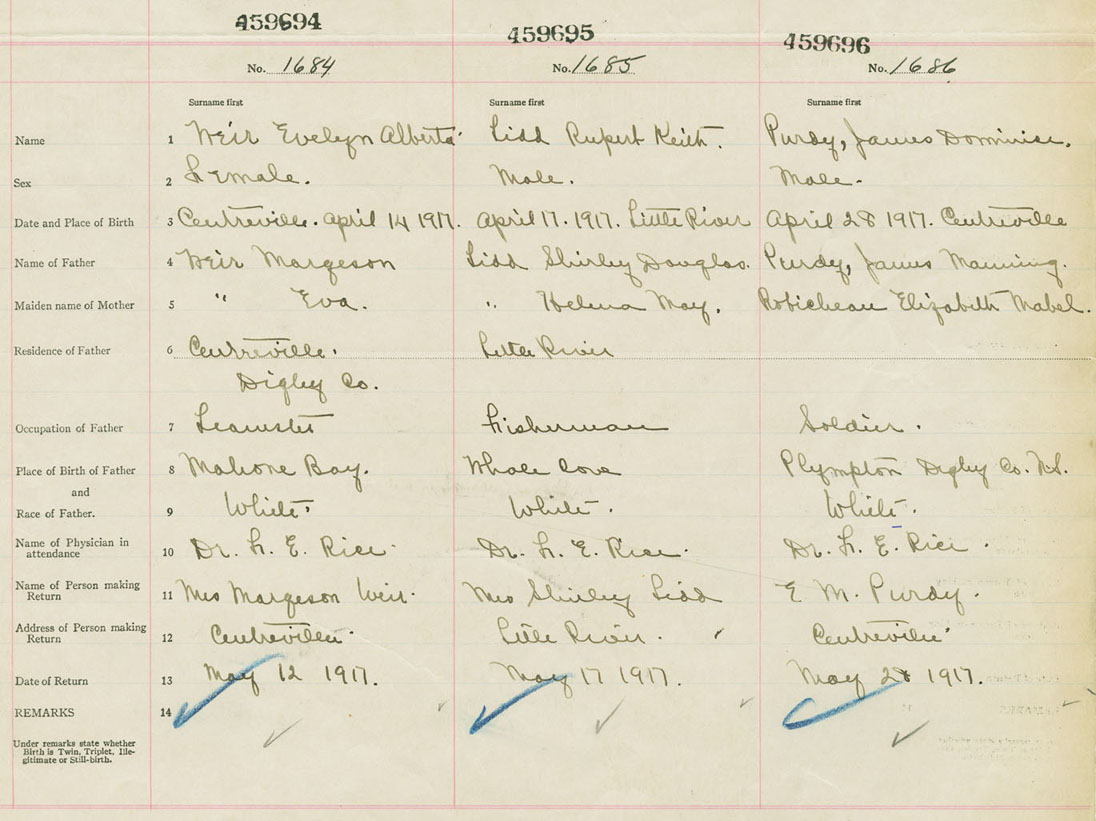 459694 459695 459696
No. 1684 No. 1685 No. 1686
Surname first Surname first Surname first
Name 1 Weir Evelyn Alberta Tidd Rupert Keith. Purdy, James
Sex 2 Female. Male. Male.
Date and Place of Birth 3 Centreville. April 14 1917. April 17. 1917. Little River April 28 1917. Centreville
Name of Father 4 Weir Margeson Tidd Shirley Douglas. Purdy, James Manning.
Maiden name of Mother 5 " Eva. " Helena May. Robicheau Elizabeth Mabel.
Residence of Father 6 Centreville. Little River
Digby Co.
Occupation of Father 7 Teamster Fisherman Soldier.
Place of Birth of Father 8 Mahone Bay. Whale Cove Plympton Digby Co. N.S.
and
Race of Father. 9 White. White. White.
Name of Physician in
attendance 10 Dr. F. E. Rice. Dr. F. E. Rice. Dr. F. E. Rice.
Name of Person making
Return 11 Mrs Margeson Weir. Mrs Shirley Tidd E. M. Purdy.
Address of Person making
Return 12 Centreville. Little River. Centreville.
Date of Return 13 May 12 1917. May 17 1917. May 28 1917.
REMARKS 14
Under remarks state whether
Birth is Twin, Triplet, Ille-
gitimate or Still-birth.